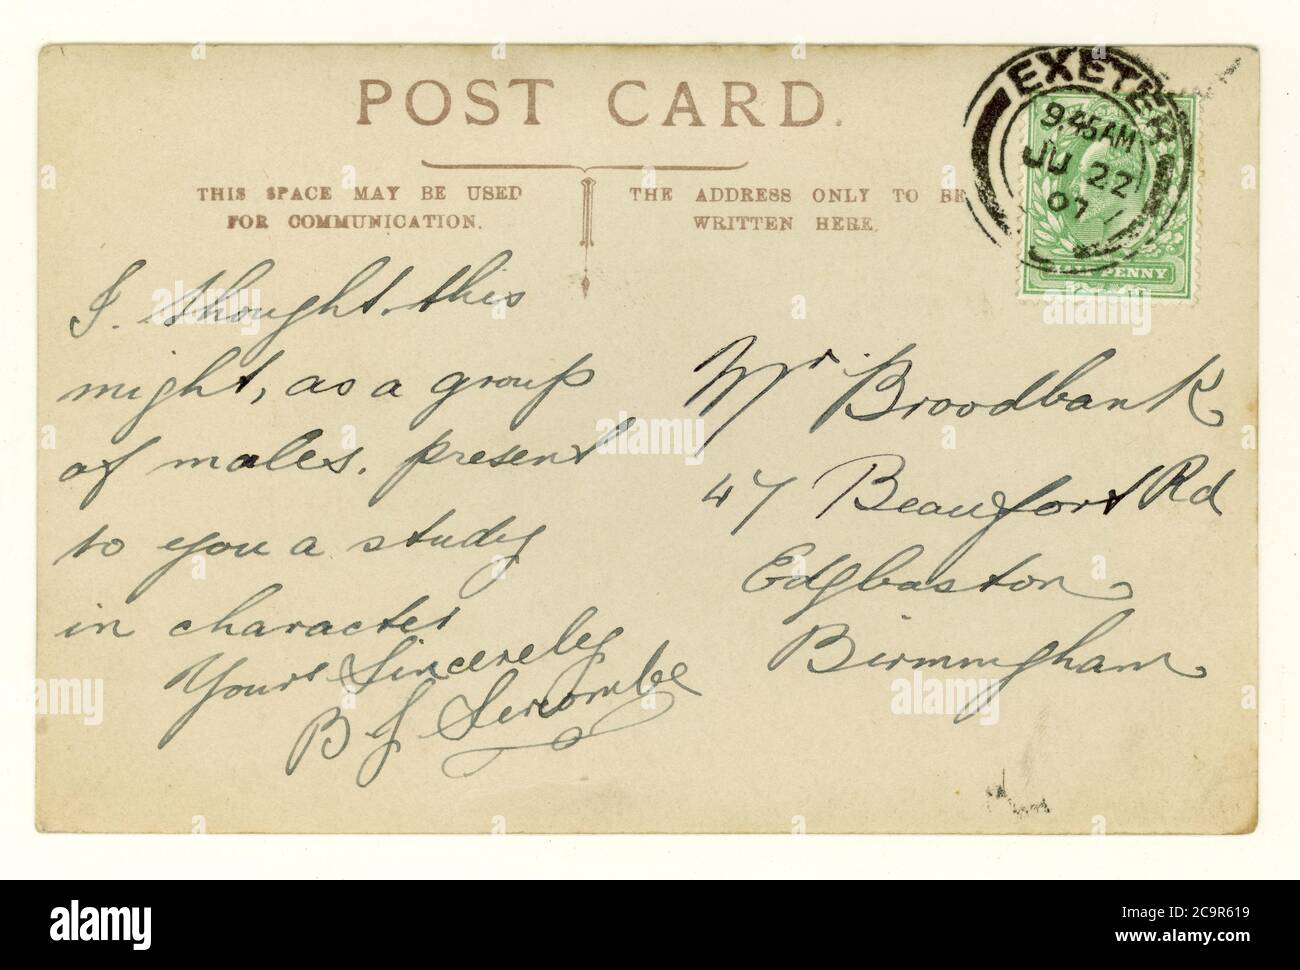 POST CARD.
THIS SPACE MAY BE USED
FOR COMMUNICATION.
THE ADDRESS ONLY TO BE
WRITTEN HERE.
EXETER
9.45AM
JU 22
07
HALF PENNY
I. thought, this
might, as a group
of males. present
to you a study
in character
Yours Sincerely
B J
Mr Broodbank
47 Beaufort Rd
Edgbaston
Birmingham
alamy
alamy
Image ID: 2C9R619
www.alamy.com